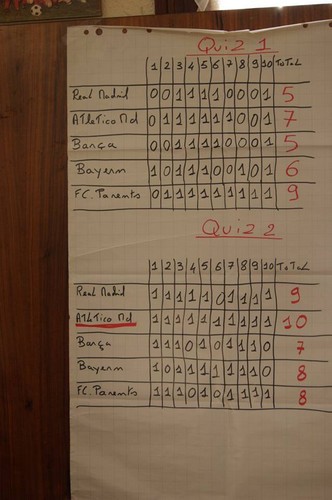 Quiz 1
1 2 3 4 5 6 7 8 9 10 ToTaL
Real Madrid 0 0 1 1 1 1 0 0 0 1 5
ATleTico Md 0 1 1 1 1 0 0 1 1 1 7
Barça 0 0 1 1 1 1 0 0 0 1 5
Bayern 1 0 1 1 1 0 0 1 0 1 6
FC. Parents 0 1 1 1 1 1 1 1 1 1 9
Quiz 2
1 2 3 4 5 6 7 8 9 10 ToTaL
Real Madrid 1 1 1 1 1 0 1 1 1 1 9
ATleTico Md 1 1 1 1 1 1 1 1 1 1 10
Barça 1 1 1 0 1 0 1 1 1 0 7
Bayern 1 0 1 1 1 1 1 1 1 0 8
FC. Parents 1 1 1 0 1 0 1 1 1 1 8